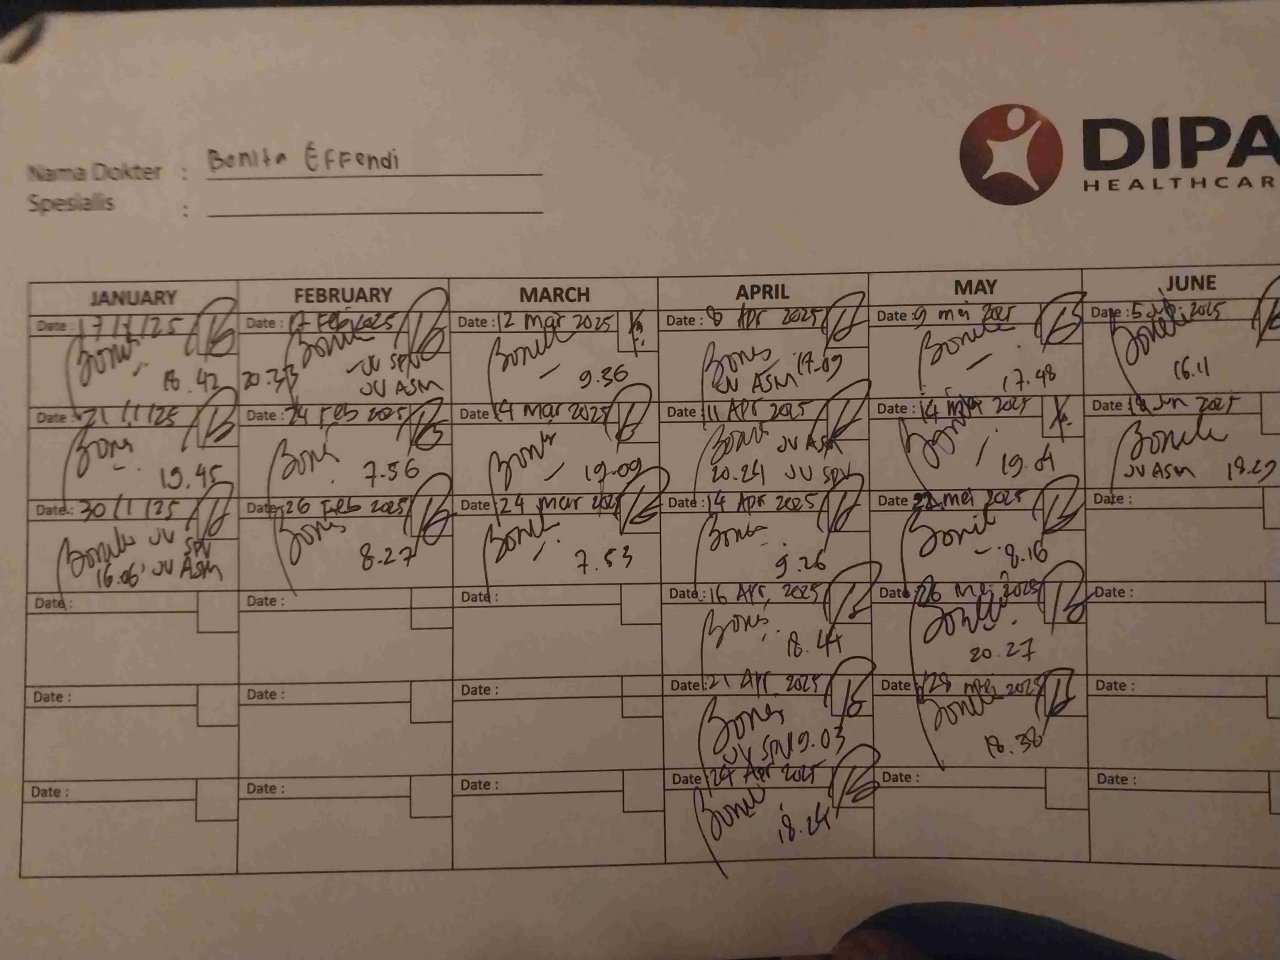 Nama Dokter : Bonita Effendi
Spesialis :
DIPA
HEALTHCAR
JANUARY FEBRUARY MARCH APRIL MAY JUNE
Date : 17/1/25 Date : 17 Feb 2025 Date : 12 Mar 2025 Date : 8 Apr 2025 Date : 9 mei 2025 Date : 5 2025
18.42 20.33 JV SPV JV ASM 9.36 JV ASM 17.09 17.48 16.11
Date : 21/1/25 Date : 24 Feb 2025 Date : 14 Mar 2025 Date : 11 Apr 2025 Date : 14 2025 Date : Jun 2025
19.45 7.56 19.09 JV ASM 20.24 JV SPV 19.04 JV ASM 18.29
Date : 30/1/25 Date : 26 Feb 2025 Date : 24 Mar 2025 Date : 14 Apr 2025 Date : 22 mei 2025 Date :
JV SPV 16.06 JV ASM 8.27 7.53 9.26 8.16
Date : Date : Date : Date : 16 Apr 2025 Date : 26 mei 2025 Date :
18.44 20.27
Date : Date : Date : Date : 21 Apr 2025 Date : 28 mei 2025 Date :
JV SPV 19.03 18.38
Date : Date : Date : Date : 24 Apr 2025 Date : Date :
18.24